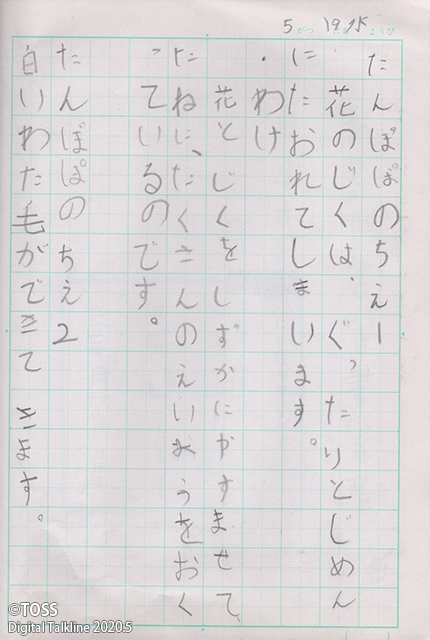 5がつ19にち水ようび
たんぽぽのちえ1
花のじくは、ぐったりとじめん
にたおれてしまいます。
・わけ
花とじくをしずかにやすませて、
たねに、たくさんのえいようをおく
っているのです。
たんぽぽのちえ2
白いわた毛ができてきます。
©TOSS
Digital Talkline 2020.5